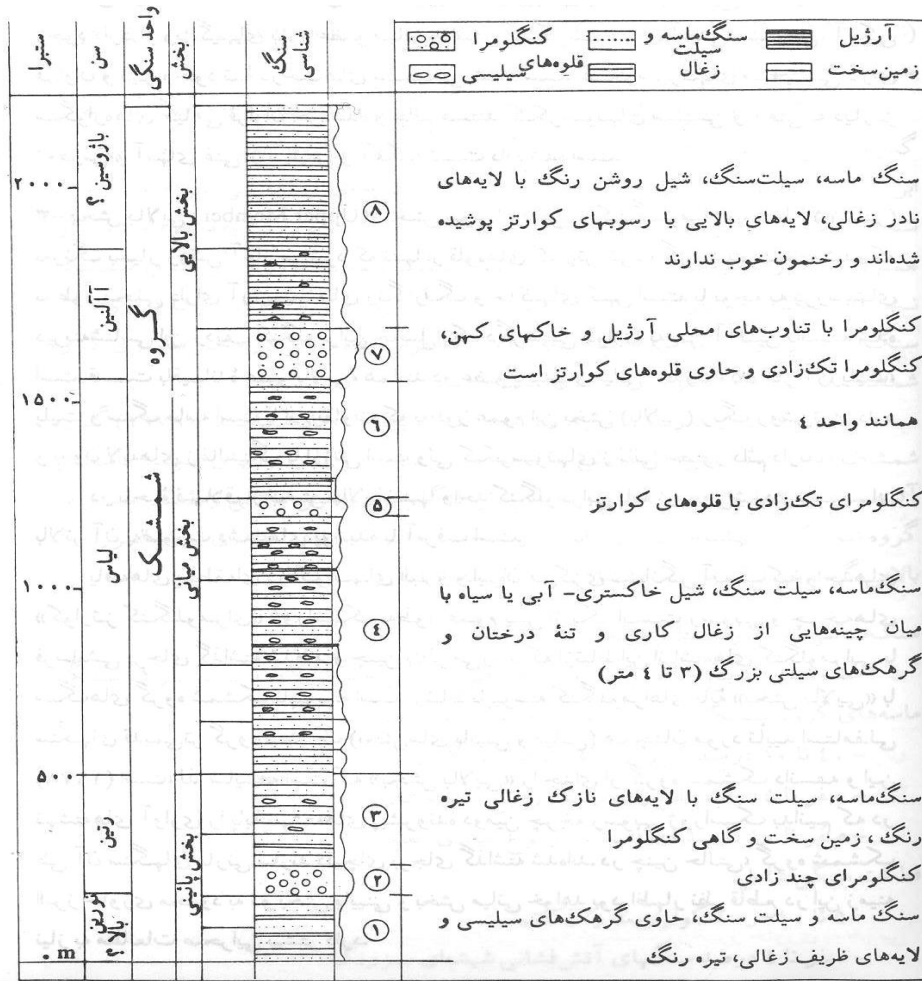 ستبرا
سن
واحد سنگی
بخش
سنگ شناسی
آرژیل
سنگ‌ماسه و سیلت
کنگلومرا
زمین‌سخت
زغال
قلوه‌های سیلیسی
باژوسین ؟
آآلنین
لیاس
رتین
نورین بالا ؟
گروه شمشک
بخش بالایی
بخش میانی
بخش پائینی
۲۰۰۰
۱۵۰۰
۱۰۰۰
۵۰۰
۰ m
۸
سنگ ماسه، سیلت‌سنگ، شیل روشن رنگ با لایه‌های
نادر زغالی، لایه‌های بالایی با رسوبهای کوارتز پوشیده
شده‌اند و رخنمون خوب ندارند
۷
کنگلومرا با تناوب‌های محلی آرژیل و خاکهای کهن،
کنگلومرا تک‌زادی و حاوی قلوه‌های کوارتز است
۶
همانند واحد ٤
۵
کنگلومرای تک‌زادی با قلوه‌های کوارتز
۴
سنگ‌ماسه، سیلت سنگ، شیل خاکستری- آبی یا سیاه با
میان چینه‌هایی از زغال کاری و تنهٔ درختان و
گرهک‌های سیلتی بزرگ (۳ تا ٤ متر)
۳
سنگ‌ماسه، سیلت سنگ با لایه‌های نازک زغالی تیره
رنگ، زمین سخت و گاهی کنگلومرا
۲
کنگلومرای چند زادی
۱
سنگ ماسه و سیلت سنگ، حاوی گرهک‌های سیلیسی و
لایه‌های ظریف زغالی، تیره رنگ